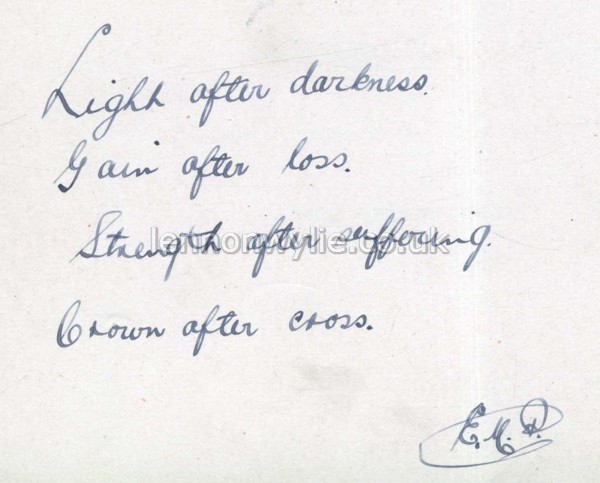 Light after darkness.
Gain after loss.
Strength after suffering.
lennonwylie.co.uk
Crown after cross.
E.M.P.